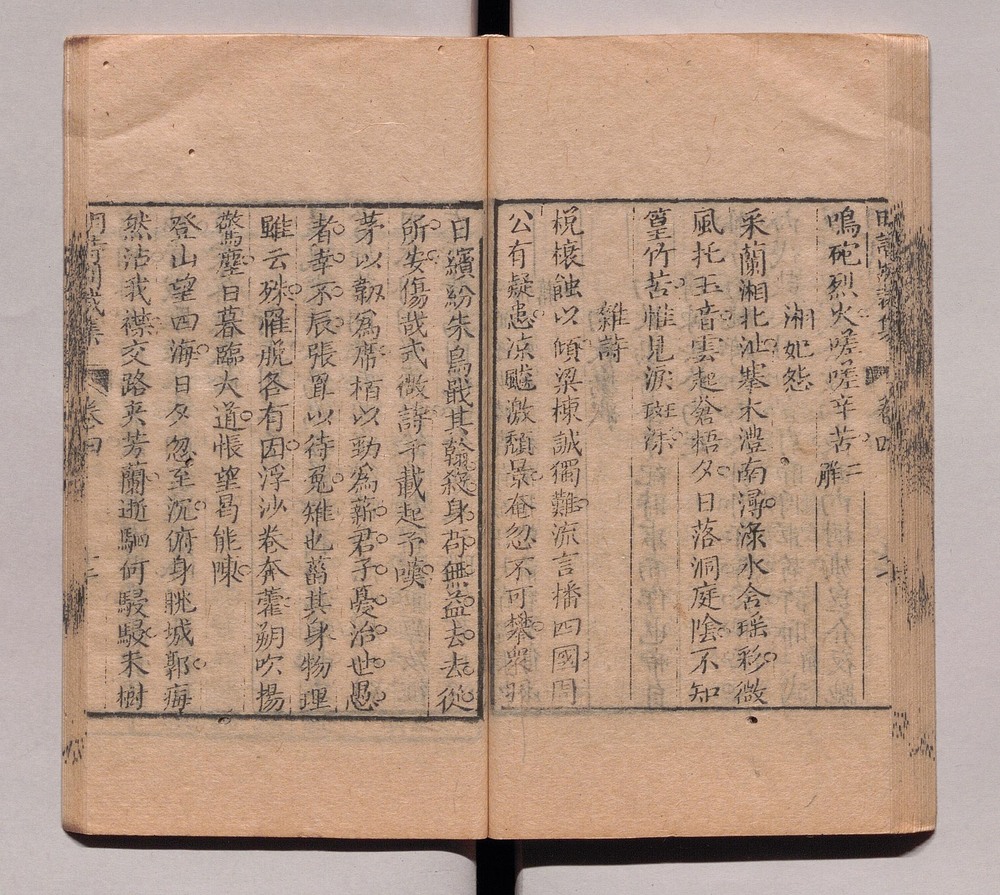 鳴砲烈火嗟嗟辛苦二解
湘妃怨
采蘭湘北沚搴木澧南潯淥水含瑶彩微
風托玉音雲起蒼梧夕日落洞庭陰不知
篁竹苦惟見淚斑深
雜詩
梲榱蝕以傾梁棟誠獨難流言播四國周
公有疑患凉飈激頹景奄忽不可攀
白日繽紛朱鳥戢其翰殺身苟無益去去從
所安傷哉式微詩千載起予嘆
茅以韌為席栢以勁為薪君子憂治世愚
者幸不辰張罝以待兔雉也蓄其身物理
雖云殊罹脫各有因浮沙卷奔藿朔吹揚
驚塵日暮臨大道悵望曷能陳
登山望四海日夕忽至沉俯身眺城郭海
然沾我襟交路夾芳蘭逝駟何駸駸未樹
卷四